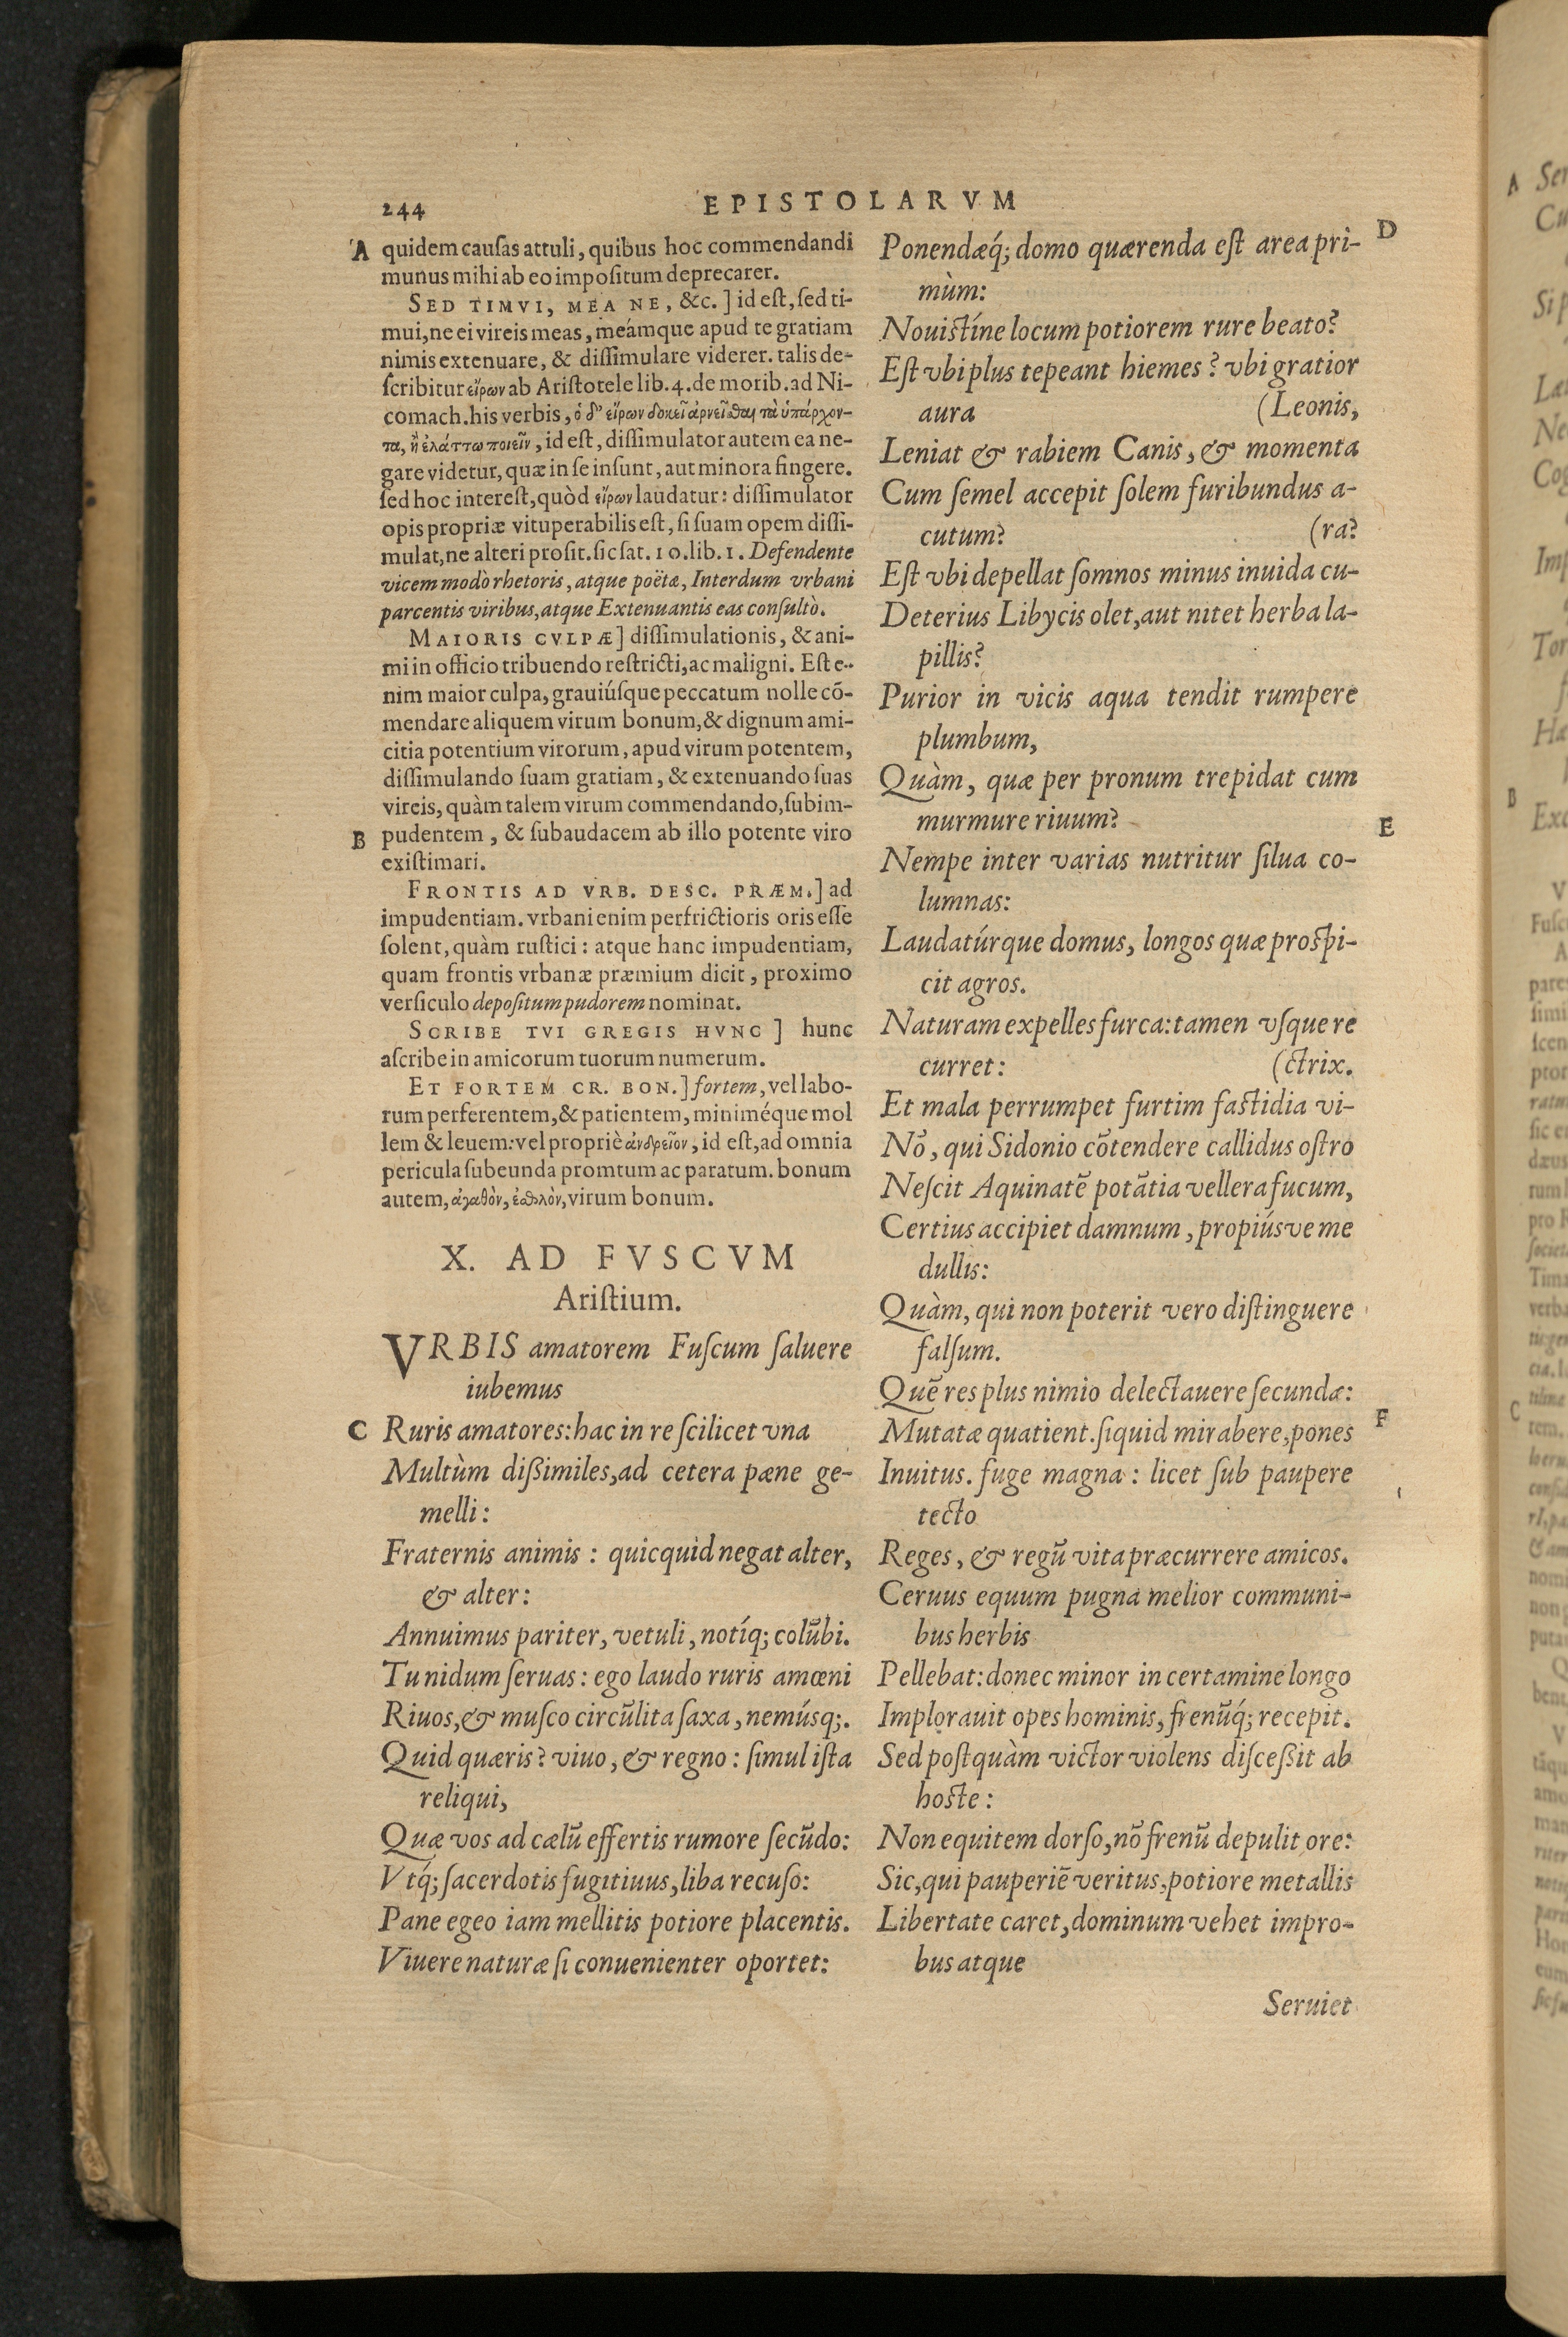 244
EPISTOLARVM
A
quidem cauſas attuli, quibus hoc commendandi
munus mihi ab eo impoſitum deprecarer.
SED TIMVI, MEA NE, &c.] id eſt, ſed ti-
mui, ne ei vireis meas, meámque apud te gratiam
nimis extenuare, & diſſimulare viderer. talis de-
ſcribitur εἴρων ab Ariſtotele lib. 4. de morib. ad Ni-
comach. his verbis, ὁ δ' εἴρων δοκεῖ ἀρνεῖσθαι τὰ ὑπάρχον-
τα, ἢ ἐλάττω ποιεῖν, id eſt, diſſimulator autem ea ne-
gare videtur, quæ in ſe inſunt, aut minora fingere.
ſed hoc intereſt, quòd εἴρων laudatur: diſſimulator
opis propriæ vituperabilis eſt, ſi ſuam opem diſſi-
mulat, ne alteri proſit. ſic ſat. 10. lib. 1. Defendente
vicem modò rhetoris, atque poëtæ, Interdum vrbani
parcentis viribus, atque Extenuantis eas conſultò.
MAIORIS CVLPÆ] diſſimulationis, & ani-
mi in officio tribuendo reſtricti, ac maligni. Eſt e-
nim maior culpa, grauiúſque peccatum nolle cō-
mendare aliquem virum bonum, & dignum ami-
citia potentium virorum, apud virum potentem,
diſſimulando ſuam gratiam, & extenuando ſuas
vireis, quàm talem virum commendando, ſubim-
B
pudentem, & ſubaudacem ab illo potente viro
exiſtimari.
FRONTIS AD VRB. DESC. PRÆM.] ad
impudentiam. vrbani enim perfrictioris oris eſſe
ſolent, quàm ruſtici: atque hanc impudentiam,
quam frontis vrbanæ præmium dicit, proximo
verſiculo depoſitum pudorem nominat.
SCRIBE TVI GREGIS HVNC ] hunc
aſcribe in amicorum tuorum numerum.
ET FORTEM CR. BON.] fortem, vel labo-
rum perferentem, & patientem, miniméque mol
lem & leuem: vel propriè ἀνδρεῖον, id eſt, ad omnia
pericula ſubeunda promtum ac paratum. bonum
autem, ἀγαθὸν, ἐσθλὸν, virum bonum.
X. AD FVSCVM
Ariſtium.
VRBIS amatorem Fuſcum ſaluere
iubemus
C
Ruris amatores: hac in re ſcilicet vna
Multùm dißimiles, ad cetera pæne ge-
melli:
Fraternis animis: quicquid negat alter,
& alter:
Annuimus pariter, vetuli, notíq; colūbi.
Tu nidum ſeruas: ego laudo ruris amœni
Riuos, & muſco circūlita ſaxa, nemúsq;.
Quid quæris? viuo, & regno: ſimul iſta
reliqui,
Quæ vos ad cælū effertis rumore ſecūdo:
Vtq́; ſacerdotis fugitiuus, liba recuſo:
Pane egeo iam mellitis potiore placentis.
Viuere naturæ ſi conuenienter oportet:
D
Ponendæq́; domo quærenda eſt area pri-
mùm:
Nouiſtíne locum potiorem rure beato?
Eſt vbi plus tepeant hiemes? vbi gratior
aura (Leonis,
Leniat & rabiem Canis, & momenta
Cum ſemel accepit ſolem furibundus a-
cutum? (ra?
Eſt vbi depellat ſomnos minus inuida cu-
Deterius Libycis olet, aut nitet herba la-
pillis?
Purior in vicis aqua tendit rumpere
plumbum,
Quàm, quæ per pronum trepidat cum
murmure riuum?
E
Nempe inter varias nutritur ſilua co-
lumnas:
Laudatúrque domus, longos quæ proſpi-
cit agros.
Naturam expelles furca: tamen vſque re
curret: (ctrix.
Et mala perrumpet furtim faſtidia vi-
Nō, qui Sidonio cōtendere callidus oſtro
Neſcit Aquinatē potātia vellera fucum,
Certius accipiet damnum, propiúsve me
dullis:
Quàm, qui non poterit vero diſtinguere
falſum.
Quē res plus nimio delectauere ſecundæ:
F
Mutatæ quatient. ſiquid mirabere, pones
Inuitus. fuge magna: licet ſub paupere
tecto
Reges, & regū vita præcurrere amicos.
Ceruus equum pugna melior communi-
bus herbis
Pellebat: donec minor in certamine longo
Implorauit opes hominis, frenūq́; recepit.
Sed poſtquàm victor violens diſceßit ab
hoſte:
Non equitem dorſo, nō frenū depulit ore:
Sic, qui pauperiē veritus, potiore metallis
Libertate caret, dominum vehet impro-
bus atque
Seruiet